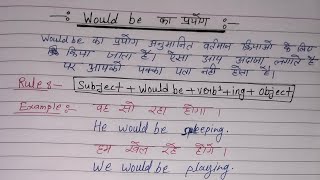 Would be का प्रयोग
Would be का प्रयोग अनुमानित वर्तमान क्रियाओं के लिए
किया जाता है। ऐसा आप अंदाजा लगाते हैं
पर आपको पक्का पता नहीं होता है।
Rule :- Subject + Would be + verb¹ + ing + Object
Example :- वह सो रहा होगा।
He would be sleeping.
हम खेल रहे होंगे।
We would be playing.